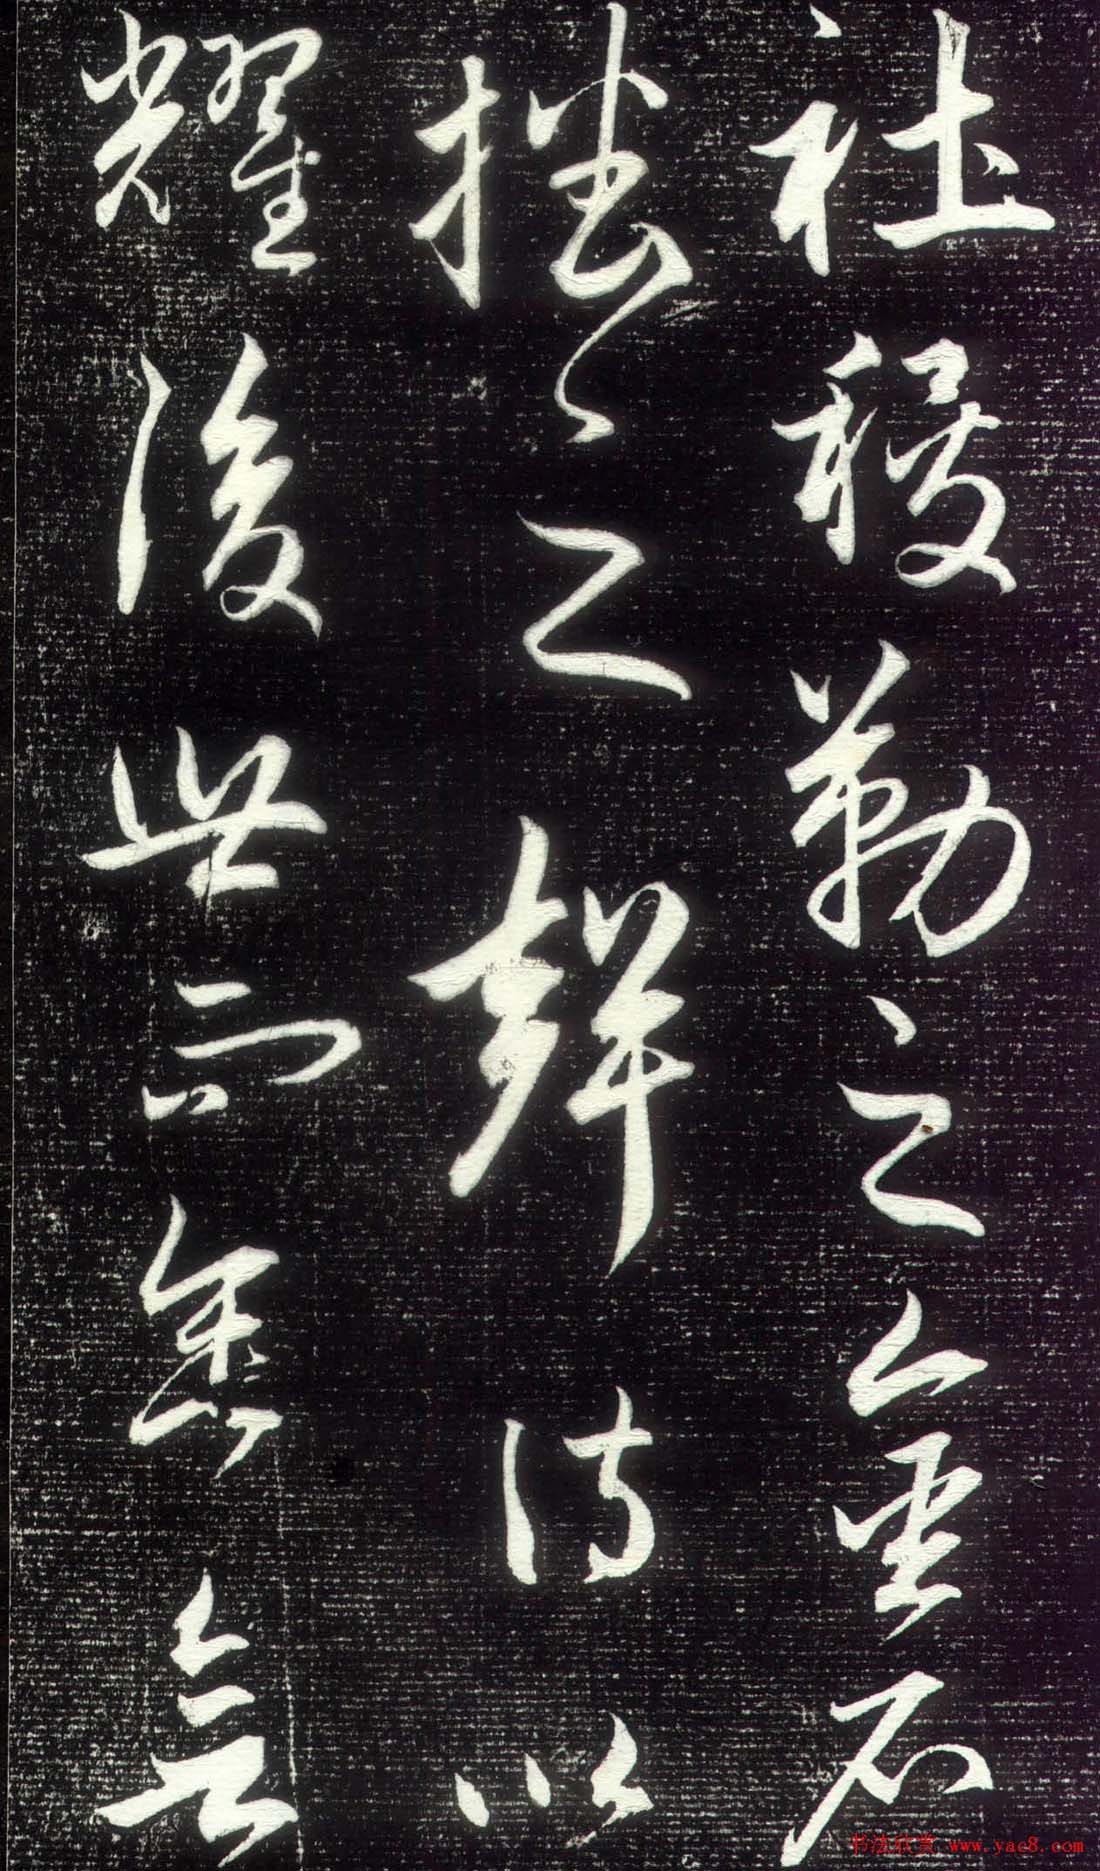 社稷勒之金石
播之聲詩以
耀後世而垂無
书法欣赏 www.yac8.com